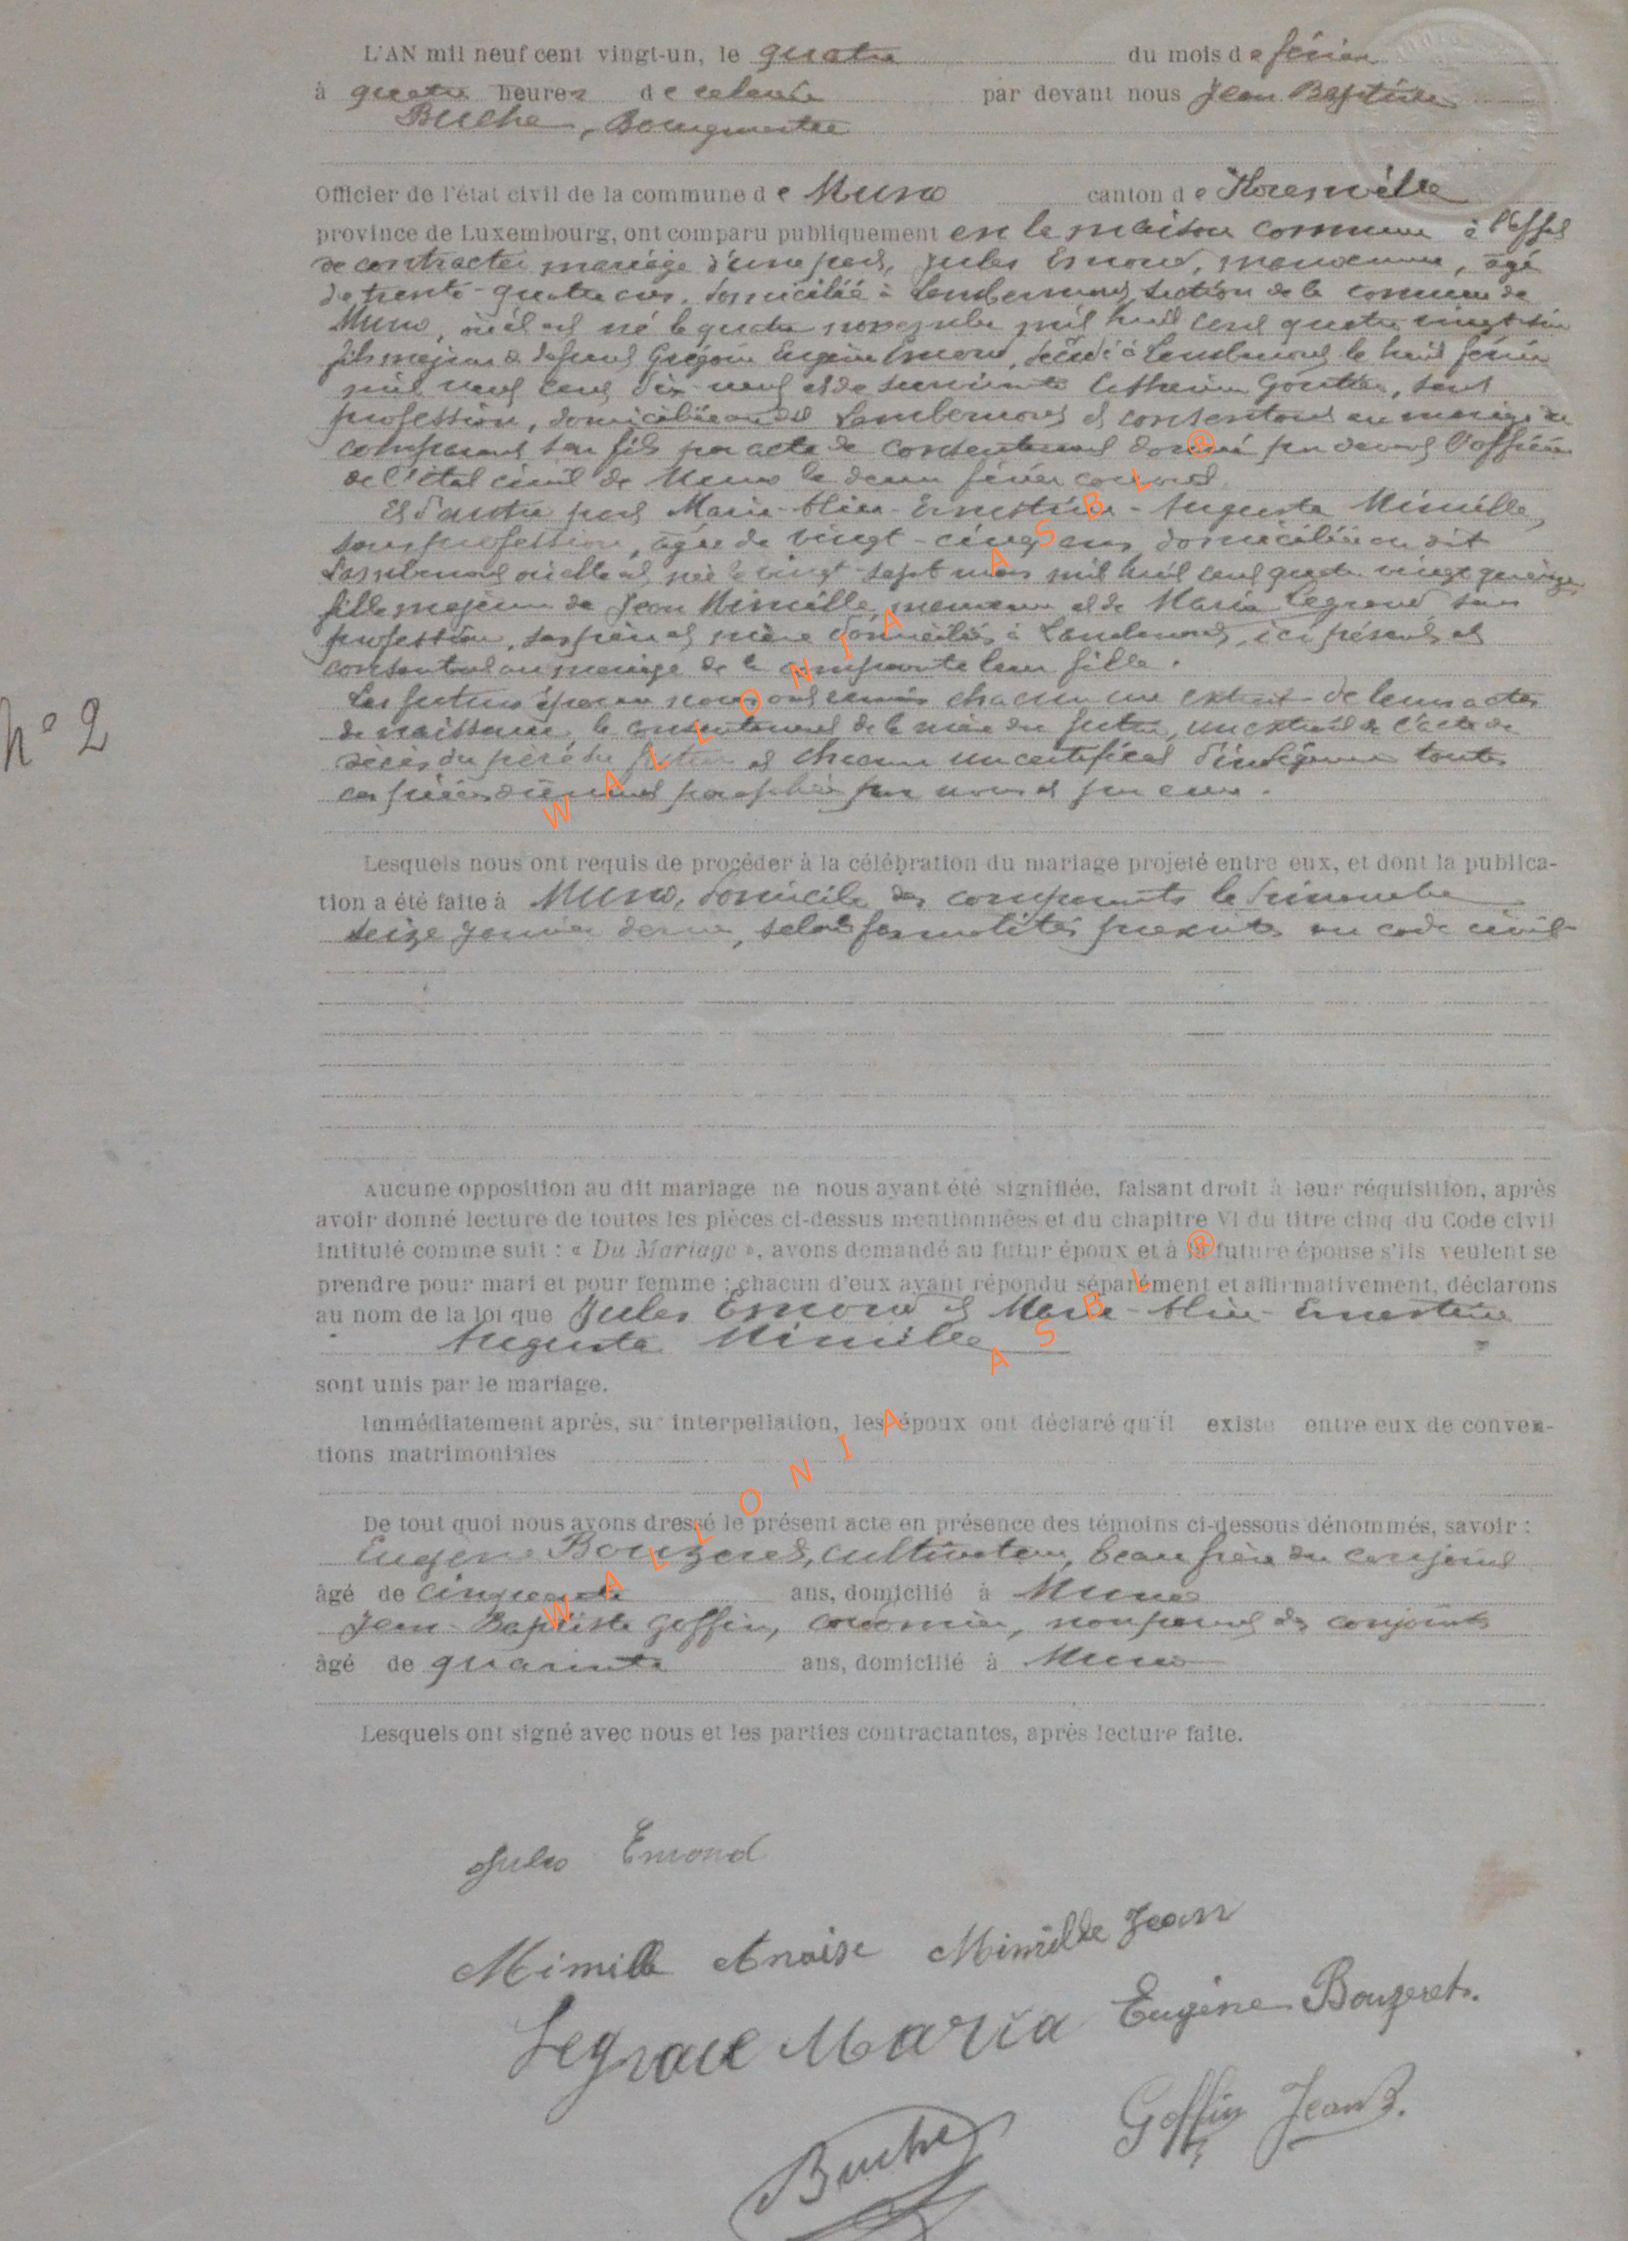 L'AN mil neuf cent vingt-un, le quatre du mois de février
à quatre heures de relevée par devant nous Jean Baptiste
Buche, Bourgmestre
Officier de l'état civil de la commune de Muno canton de Florenville
province de Luxembourg, ont comparu publiquement en la maison commune à l'effet
de contracter mariage d'une part, Jules Emond, manœuvre, âgé
de trente-quatre ans, domicilié à Lambermont, section de la commune de
Muno, où il est né le quatre novembre mil huit cent quatre vingt six
fils majeur de defunt Grégoire Eugène Emond, décédé à Lambermont le huit février
mil neuf cent dix-neuf et de survivante Catherine Gouttier, sans
profession, domiciliée au dit Lambermont et consentant au mariage du
comparant son fils par acte de consentement donné par devant l'officier
de l'état civil de Muno le deux février courant.
Et d'autre part Marie-Ernestine-Augusta Mimille,
sans profession, âgée de vingt-cinq ans, domiciliée au dit
Lambermont où elle est née le vingt-sept mars mil huit cent quatre vingt quinze
fille majeure de Jean Mimille, manœuvre et de Maria Legrand sans
profession, ses père et mère domiciliés à Lambermont, ici présents et
consentant au mariage de la comparante leur fille.
Les futurs époux nous ont remis chacun un extrait de leurs actes
de naissance, le consentement de la mère du futur, un extrait de l'acte de
décès du père du futur et chacun un certificat d'indigence toutes
ces pièces dûment paraphées par nous et par eux.
N° 2
Lesquels nous ont requis de procéder à la célébration du mariage projeté entre eux, et dont la publica-
tion a été faite à Muno, domicile des comparants le dimanche
seize janvier dernier, selon formalités prescrites au code civil
Aucune opposition au dit mariage ne nous ayant été signifiée, faisant droit à leur réquisition, après
avoir donné lecture de toutes les pièces ci-dessus mentionnées et du chapitre VI du titre cinq du Code civil
intitulé comme suit : « Du Mariage », avons demandé au futur époux et à la future épouse s'ils veulent se
prendre pour mari et pour femme ; chacun d'eux ayant répondu séparément et affirmativement, déclarons
au nom de la loi que Jules Emond et Marie-Ernestine
Augusta Mimille
sont unis par le mariage.
Immédiatement après, sur interpellation, les époux ont déclaré qu'il existe entre eux de conven-
tions matrimoniales
De tout quoi nous avons dressé le présent acte en présence des témoins ci-dessous dénommés, savoir :
Eugène Bouzeret, cultivateur, beau frère du conjoint
âgé de cinquante ans, domicilié à Muno
Jean-Baptiste Goffin, cordonnier, non parent des conjoints
âgé de quarante ans, domicilié à Muno
Lesquels ont signé avec nous et les parties contractantes, après lecture faite.
Jules Emond
Mimille Anaise Mimille Jean
Legrand Maria Eugène Bouzeret.
Goffin Jean B.
Buche
WALLONIA ASBL ®
WALLONIA ASBL ®